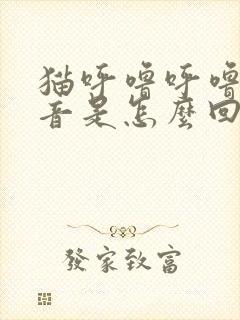 猫呼噜呼噜
音是怎麼回
發家致富